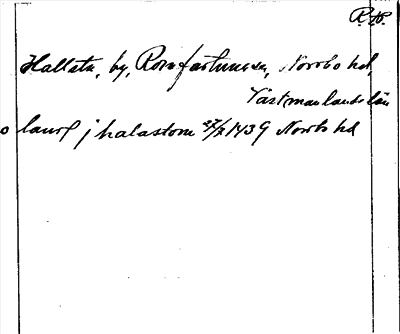 R.A.
Hallsta, by, Romfartuna sn, Norrbo hd,
Västmanlands län
o laurꝭ j halastom 27/2 1439 Norrbo hd